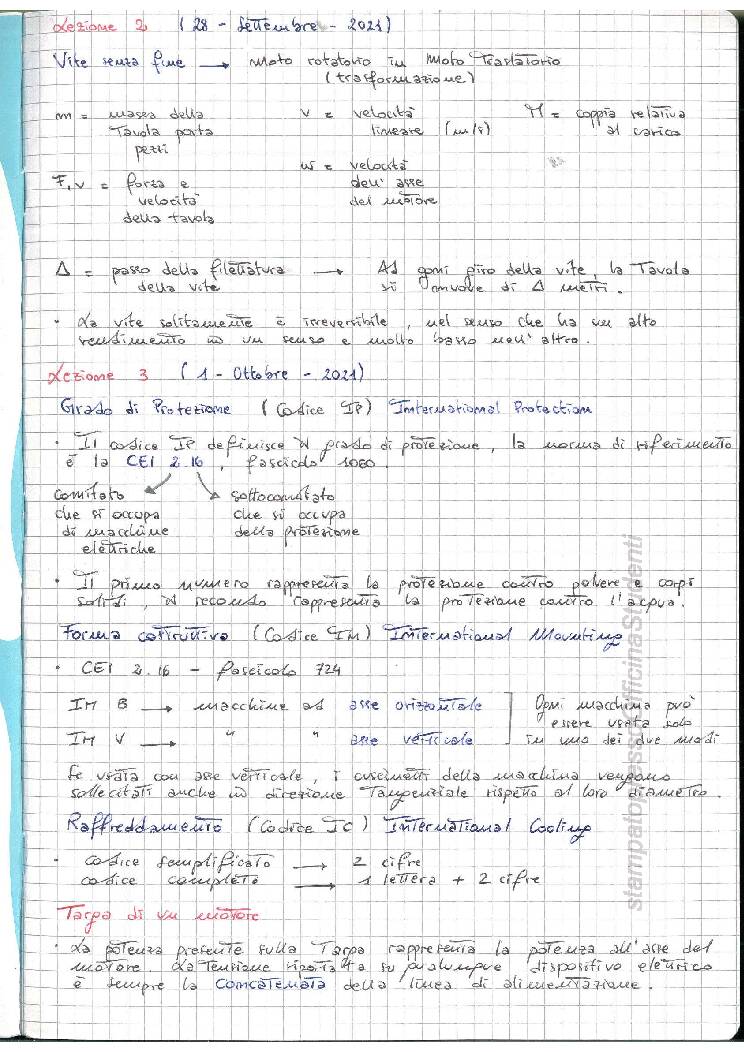 Lezione 2 (28 - Settembre - 2021)
Vite senza fine → moto rotatorio in moto traslatorio
(trasformazione)
m = massa della tavola porta pezzi
v = velocità lineare (m/s)
M = coppia relativa al carico
F, v = forza e velocità della tavola
ω = velocità dell'asse del motore
Δ = passo della filettatura della vite → Ad ogni giro della vite, la tavola
si muove di Δ metri.
• La vite solitamente è irreversibile, nel senso che ha un alto
rendimento in un senso e molto basso nell'altro.
Lezione 3 (1 - Ottobre - 2021)
Grado di Protezione (Codice IP) International Protection
• Il codice IP definisce il grado di protezione, la norma di riferimento
è la CEI 2.16, fascicolo 1060.
comitato che si occupa di macchine elettriche
sottocomitato che si occupa della protezione
• Il primo numero rappresenta la protezione contro polvere e corpi
solidi, il secondo rappresenta la protezione contro l'acqua.
Forma costruttiva (Codice IM) International Mounting
• CEI 2.16 - fascicolo 724
IM B → macchine ad asse orizzontale
IM V → " " asse verticale
Ogni macchina può essere usata solo in uno dei due modi
Se usata con asse verticale, i cuscinetti della macchina vengono
sollecitati anche in direzione tangenziale rispetto al loro diametro.
Raffreddamento (Codice IC) International Cooling
• codice semplificato → 2 cifre
codice completo → 1 lettera + 2 cifre
Targa di un motore
• La potenza presente sulla targa rappresenta la potenza all'asse del
motore. La tensione riportata su qualunque dispositivo elettrico
è sempre la concatenata della linea di alimentazione.
stampatopressoOfficinaStudenti